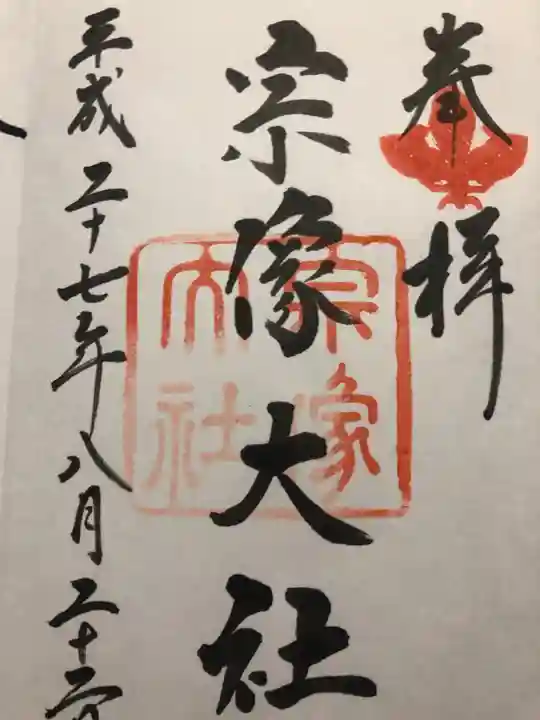 奉拝
宗像大社
宗像
大社
平成二十七年八月二十二日